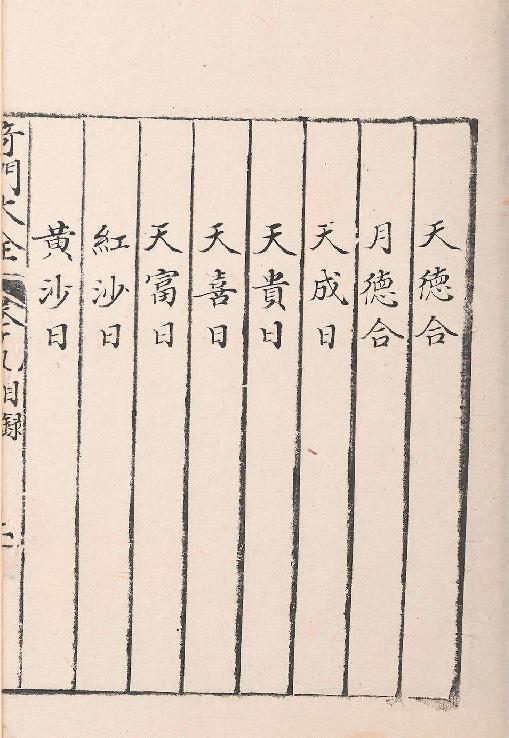 天德合
月德合
天成日
天貴日
天喜日
天富日
紅沙日
黄沙日
奇門大全 目録